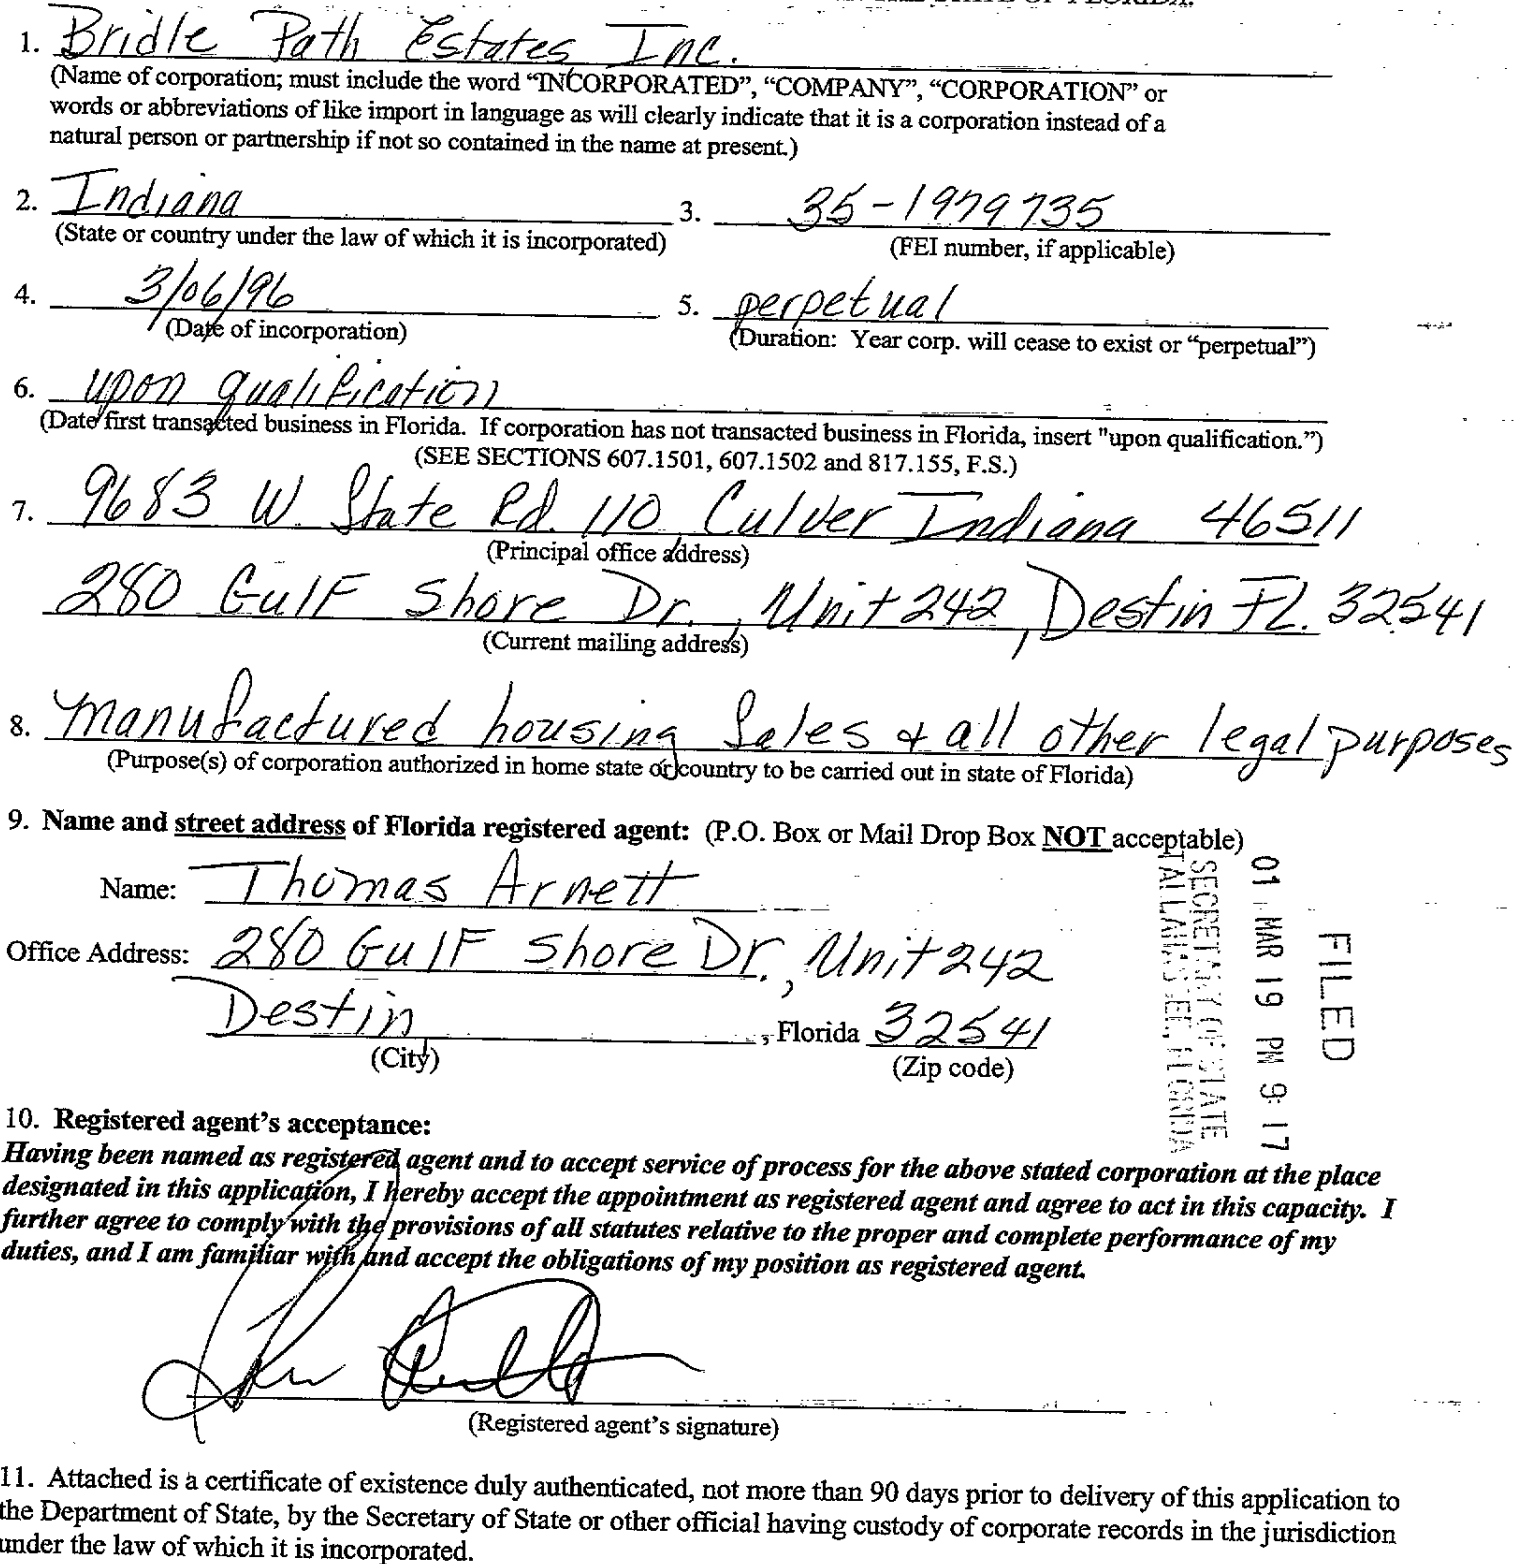 1. Bridle Path Estates Inc.
(Name of corporation; must include the word “INCORPORATED”, “COMPANY”, “CORPORATION” or
words or abbreviations of like import in language as will clearly indicate that it is a corporation instead of a
natural person or partnership if not so contained in the name at present.)
2. Indiana 3. 35-1979735
(State or country under the law of which it is incorporated) (FEI number, if applicable)
4. 3/06/96 5. perpetual
(Date of incorporation) (Duration: Year corp. will cease to exist or “perpetual”)
6. upon qualification
(Date first transacted business in Florida. If corporation has not transacted business in Florida, insert "upon qualification.”)
(SEE SECTIONS 607.1501, 607.1502 and 817.155, F.S.)
7. 9683 W. State Rd. 110 Culver Indiana 46511
(Principal office address)
280 Gulf Shore Dr., Unit 242, Destin FL. 32541
(Current mailing address)
8. manufactured housing Sales & all other legal purposes
(Purpose(s) of corporation authorized in home state or country to be carried out in state of Florida)
9. Name and street address of Florida registered agent: (P.O. Box or Mail Drop Box NOT acceptable)
Name: Thomas Arnett
Office Address: 280 Gulf Shore Dr., Unit 242
Destin, Florida 32541
(City) (Zip code)
FILED
01 MAR 19 PM 9:17
SECRETARY OF STATE
TALLAHASSEE, FLORIDA
10. Registered agent’s acceptance:
Having been named as registered agent and to accept service of process for the above stated corporation at the place
designated in this application, I hereby accept the appointment as registered agent and agree to act in this capacity. I
further agree to comply with the provisions of all statutes relative to the proper and complete performance of my
duties, and I am familiar with and accept the obligations of my position as registered agent.
(Registered agent’s signature)
11. Attached is a certificate of existence duly authenticated, not more than 90 days prior to delivery of this application to
the Department of State, by the Secretary of State or other official having custody of corporate records in the jurisdiction
under the law of which it is incorporated.